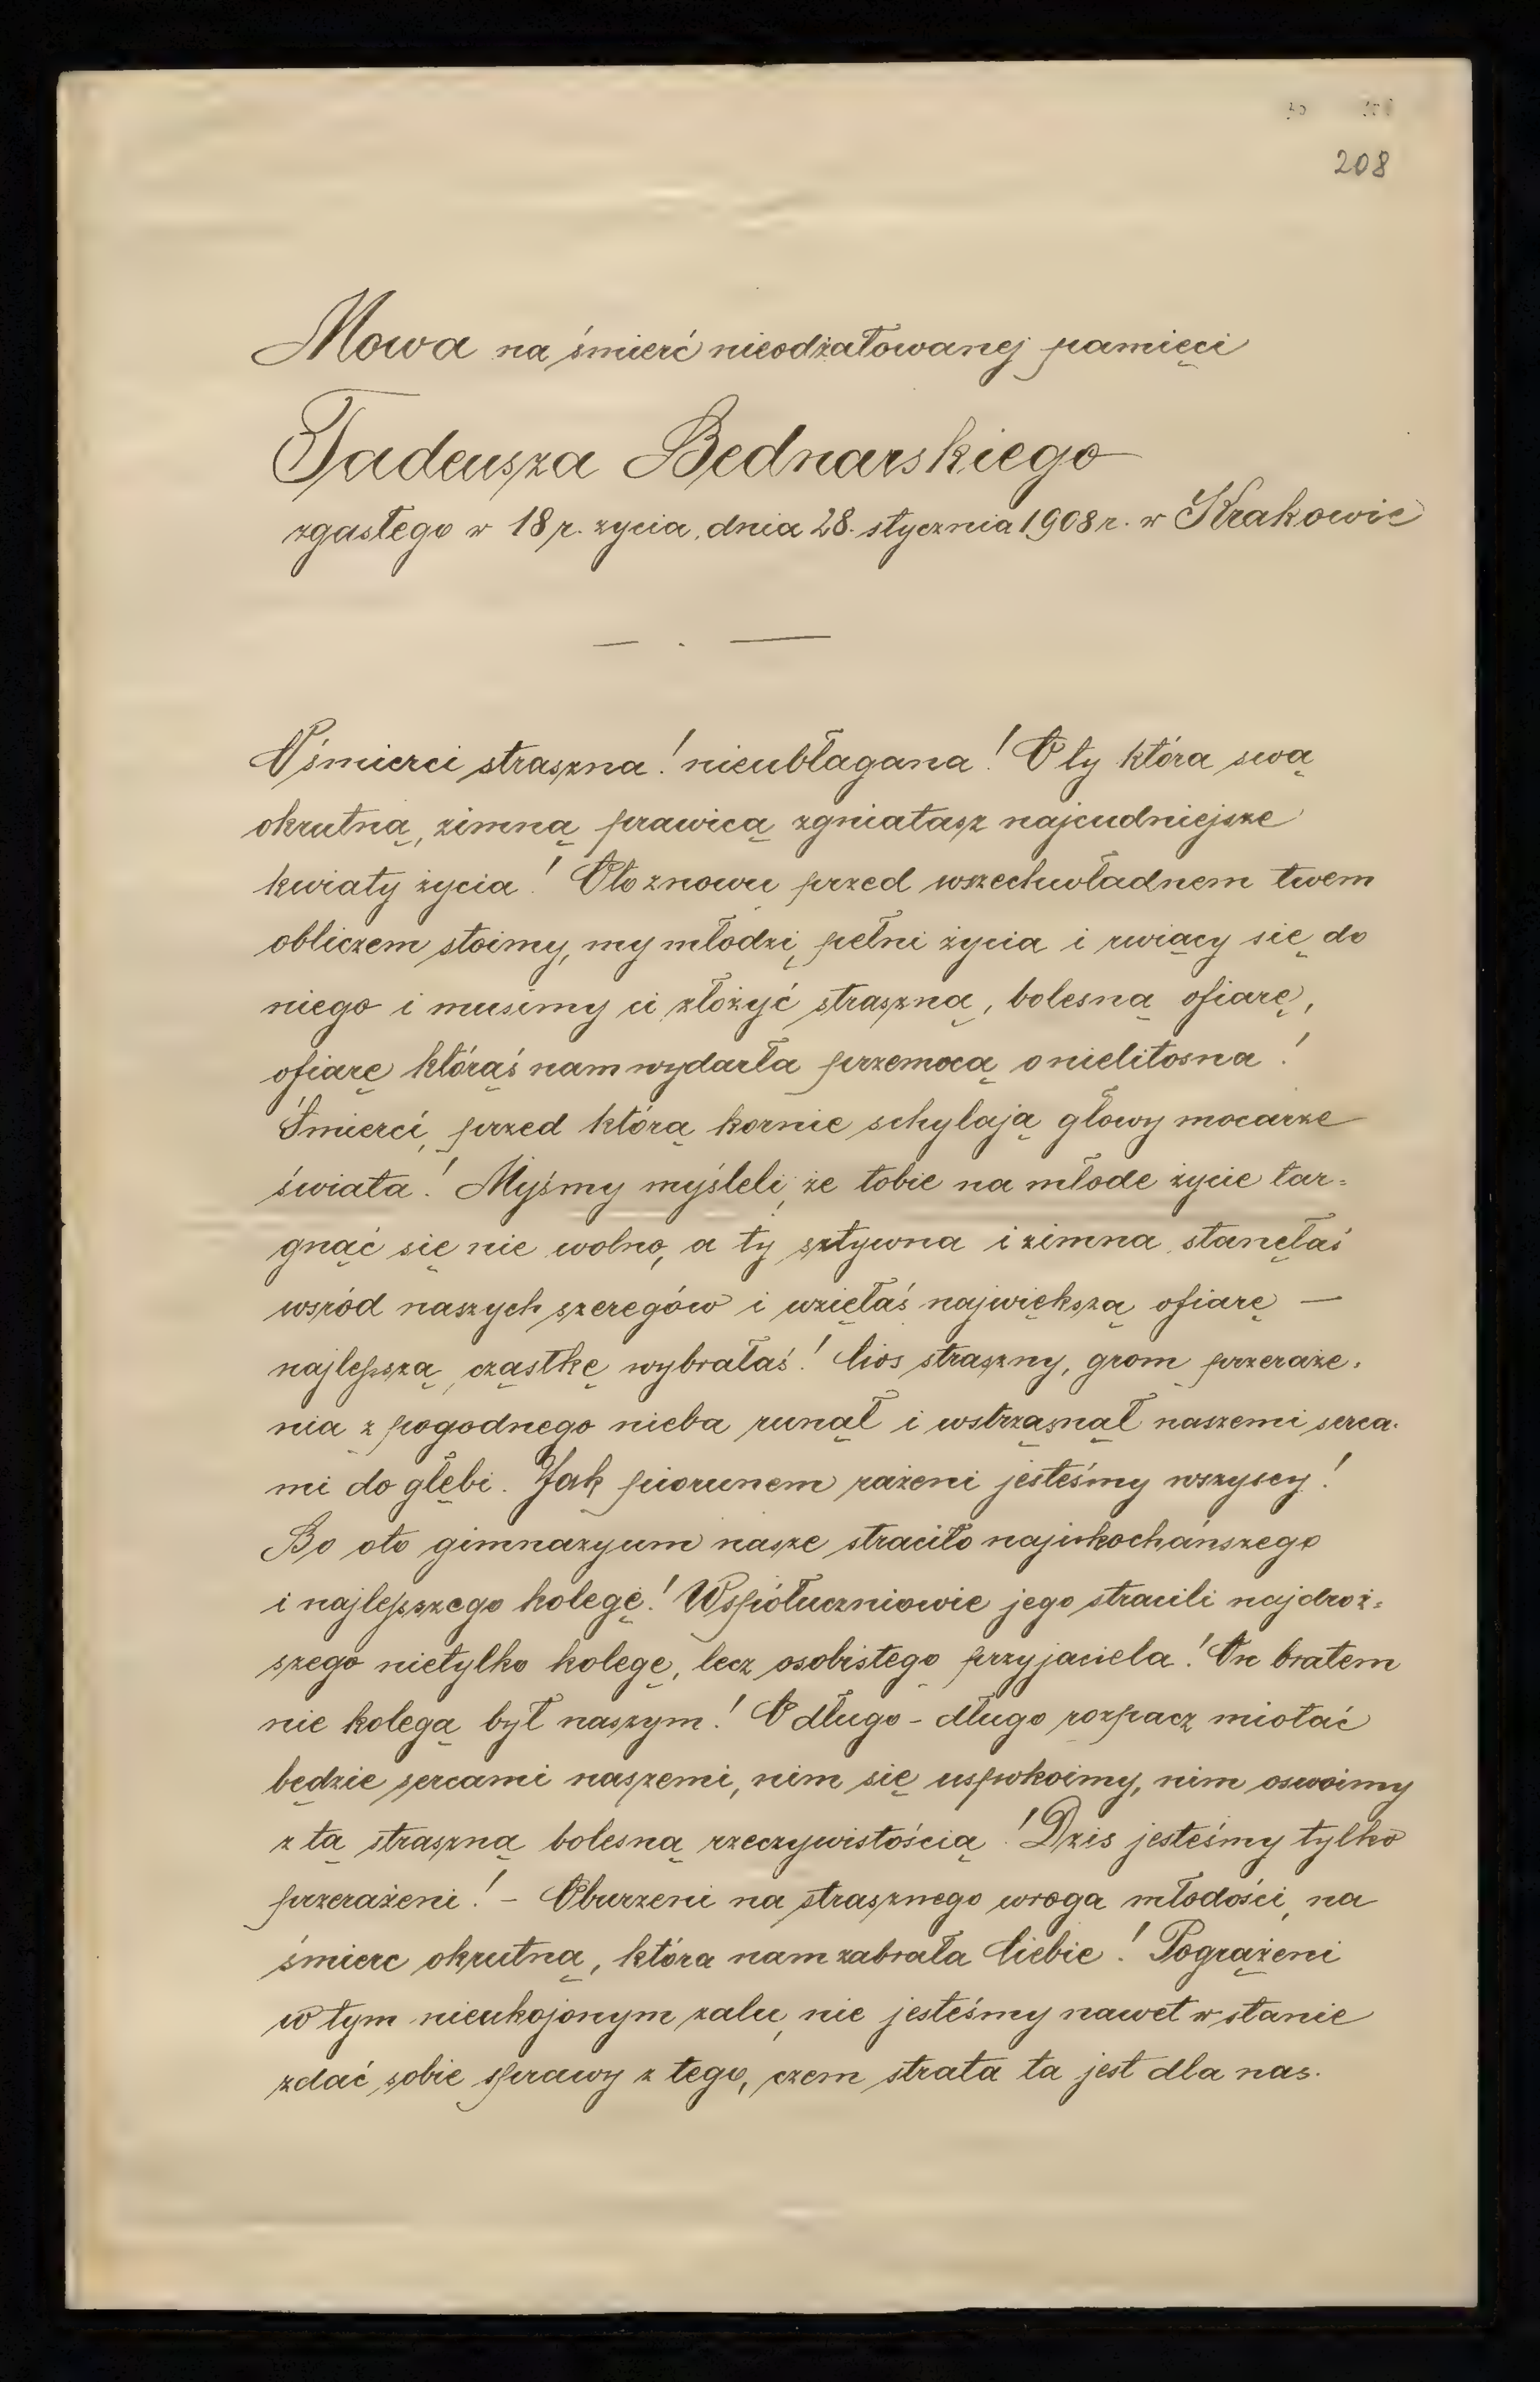 208
Mowa na śmierć nieodżałowanej pamięci
Tadeusza Bednarskiego
zgasłego w 18 r. życia, dnia 28. stycznia 1908 r. w Krakowie
O śmierci straszna! nieubłagana! O ty która swą
okrutną, zimną prawicą zgniatasz najcudniejsze
kwiaty życia! Oto znowu przed wszechwładnem twem
obliczem stoimy, my młodzi, pełni życia i rwiący się do
niego i musimy ci złożyć straszną, bolesną ofiarę,
ofiarę którąś nam wydarła przemocą o nielitosna!
Śmierci, przed którą kornie schylają głowy mocarze
świata! Myśmy myśleli, że tobie na młode życie tar=
gnąć się nie wolno, a ty sztywna i zimna stanęłaś
wsród naszych szeregów i wzięłaś największą ofiarę —
najlepszą cząstkę wybrałaś! Cios straszny, grom przeraże-
nia z pogodnego nieba runął i wstrząsnął naszemi serca-
mi do głębi. Jak piorunem rażeni jesteśmy wszyscy!
Bo oto gimnazyum nasze straciło najukochańszego
i najlepszego kolegę! Współuczniowie jego stracili najdroż=
szego nietylko kolegę, lecz osobistego przyjaciela! On bratem
nie kolegą był naszym! O długo - długo rozpacz miotać
będzie sercami naszemi, nim się uspokoimy, nim oswoimy
z tą straszną bolesną rzeczywistością! Dzis jesteśmy tylko
przerażeni! - Oburzeni na strasznego wroga młodości, na
śmierc okrutną, która nam zabrała Ciebie! Pogrążeni
w tym nieukojonym żalu, nie jesteśmy nawet w stanie
zdać sobie sprawy z tego, czem strata ta jest dla nas.